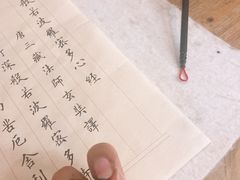 般若波羅蜜多心經
唐三藏法師玄奘譯
深般若波羅蜜多
苦厄舍利